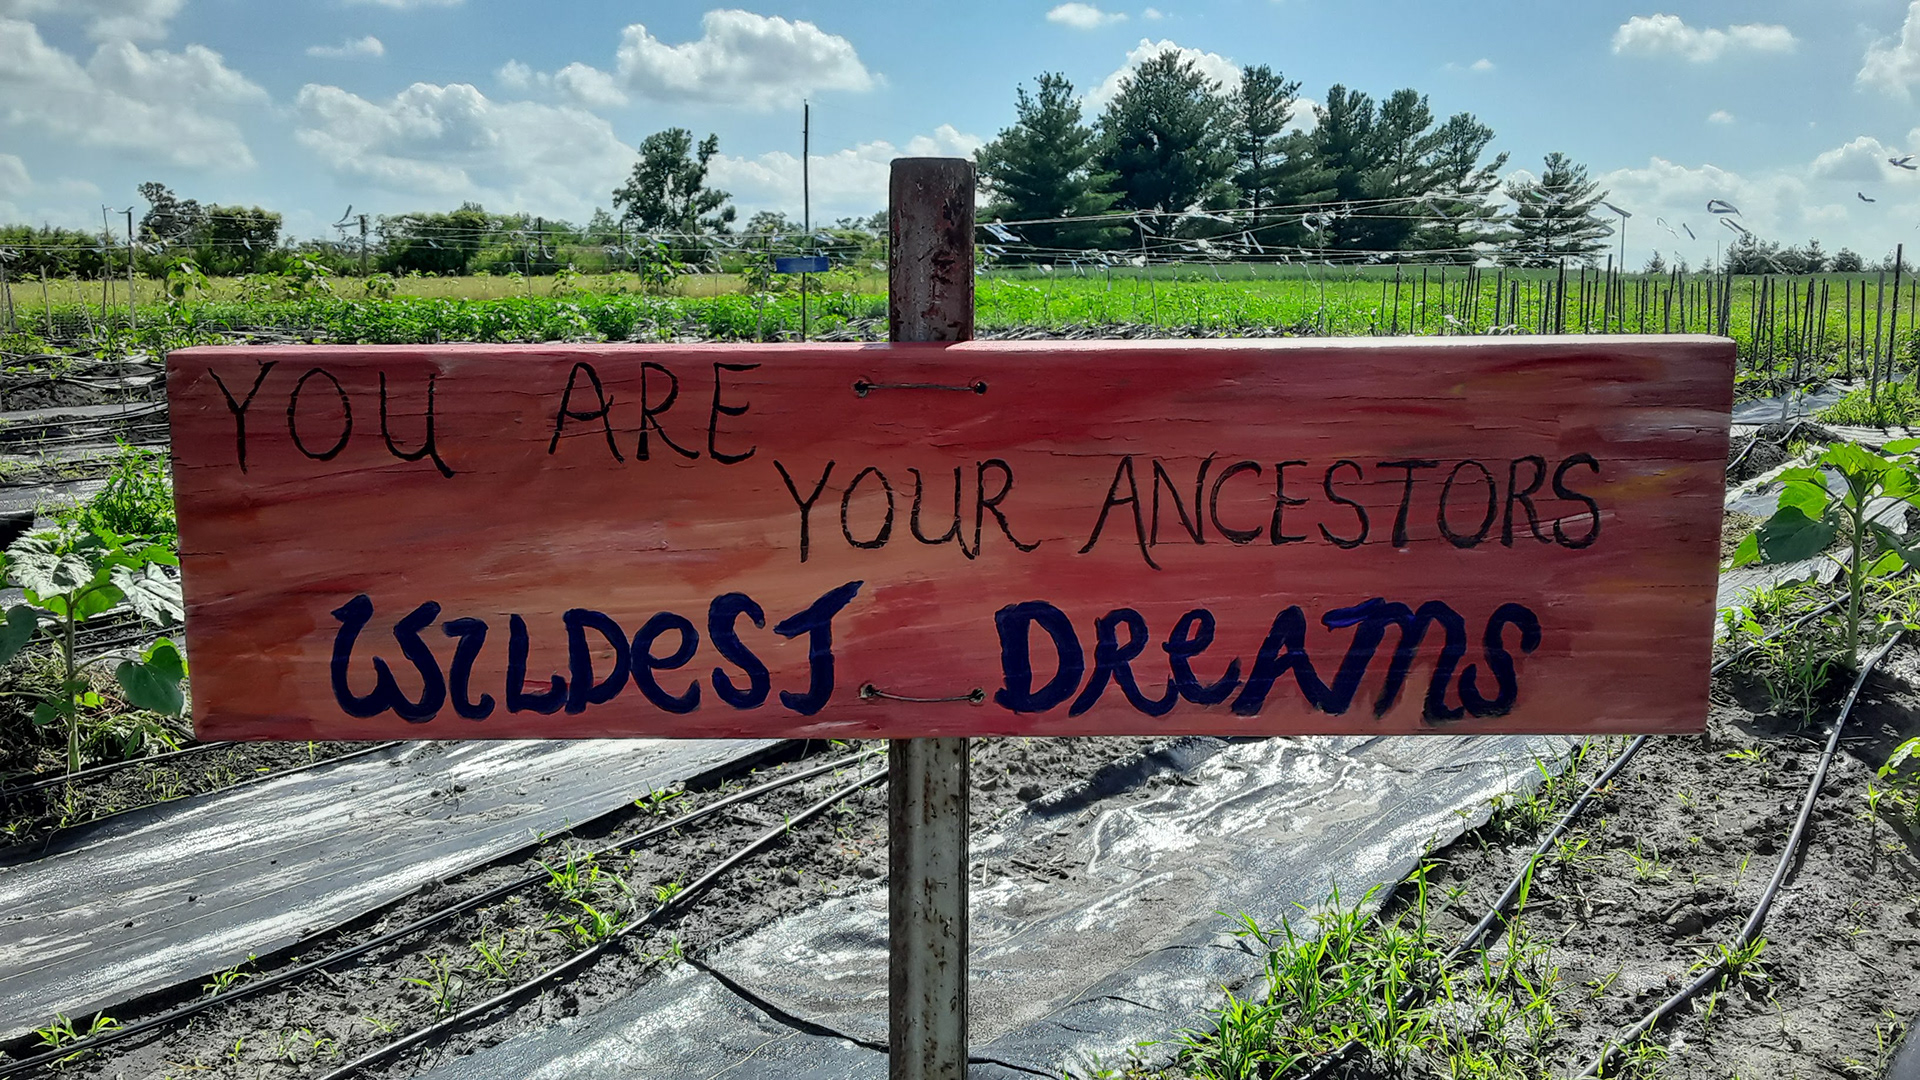 YOU ARE
YOUR ANCESTORS
WILDEST DREAMS